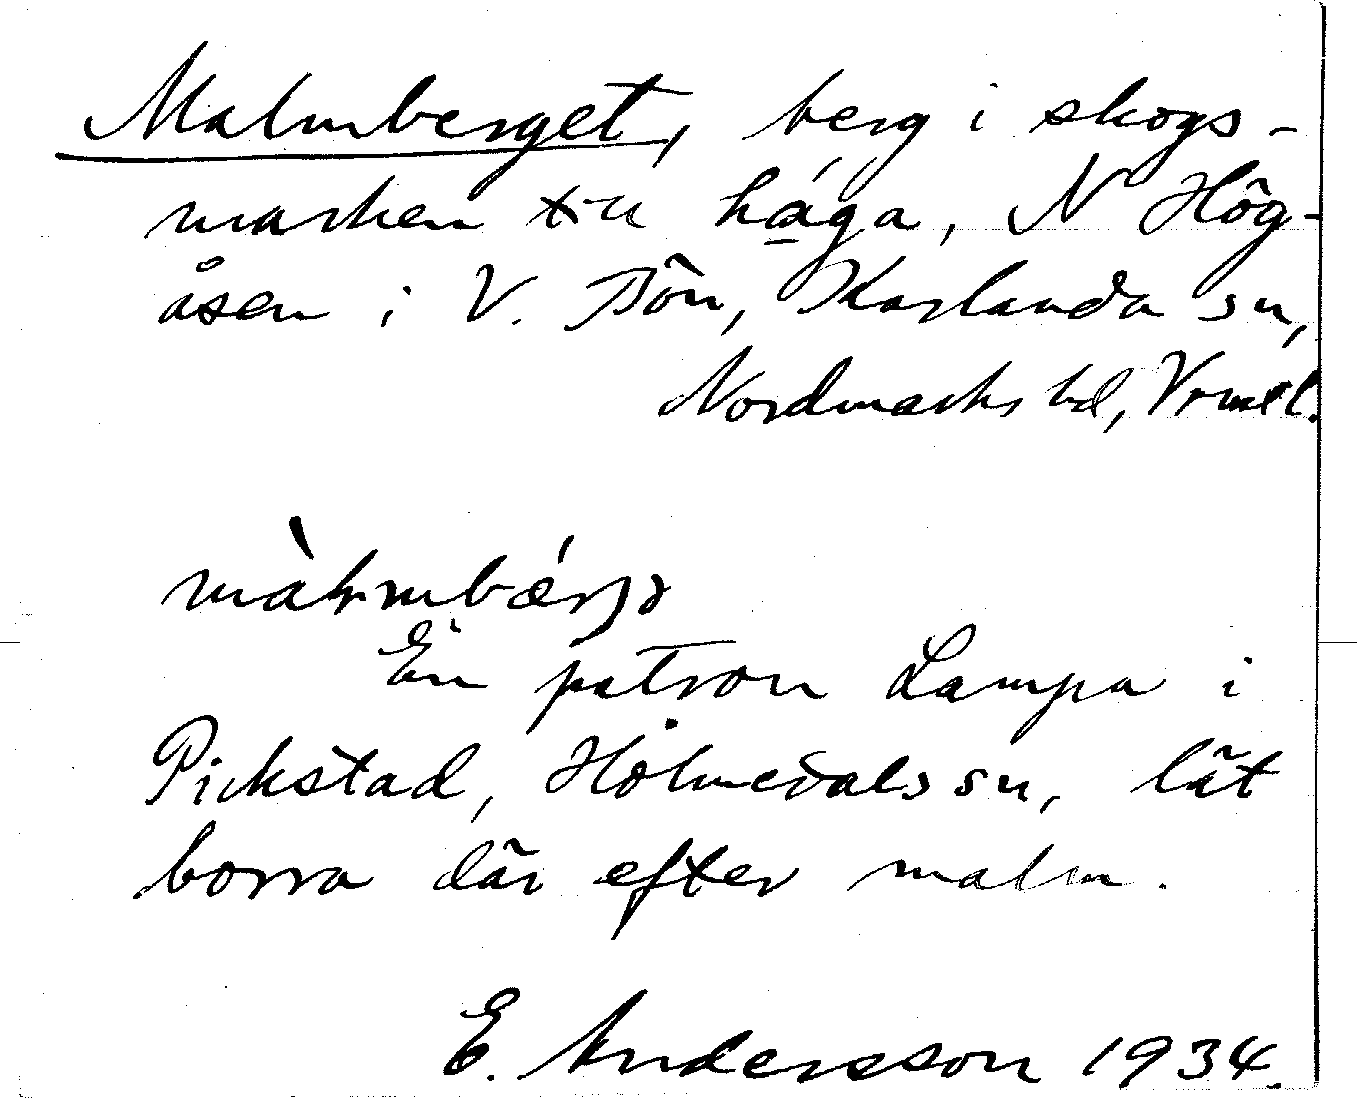 Malmberget, berg i skogs-
marken t. u. håga, N Hög-
åsen i V. Bön, Karlanda sn,
Nordmarks hd, Vrml.
En patron Lampa i
Pickstad, Holmedals sn, lät
borra där efter malm.
E. Andersson 1934.